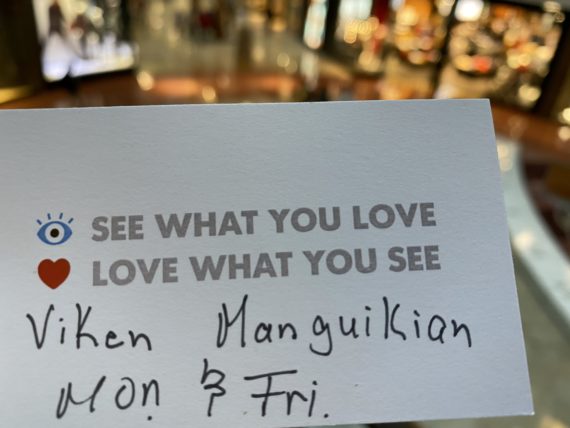 SEE WHAT YOU LOVE
LOVE WHAT YOU SEE
Viken Manguikian
Mon & Fri.